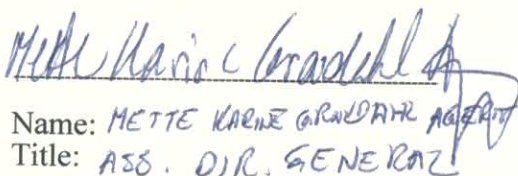 Mette Karine Grøndahl
Name: METTE KARINE GRØNDAHL
Title: ASS. DIR. GENERAL